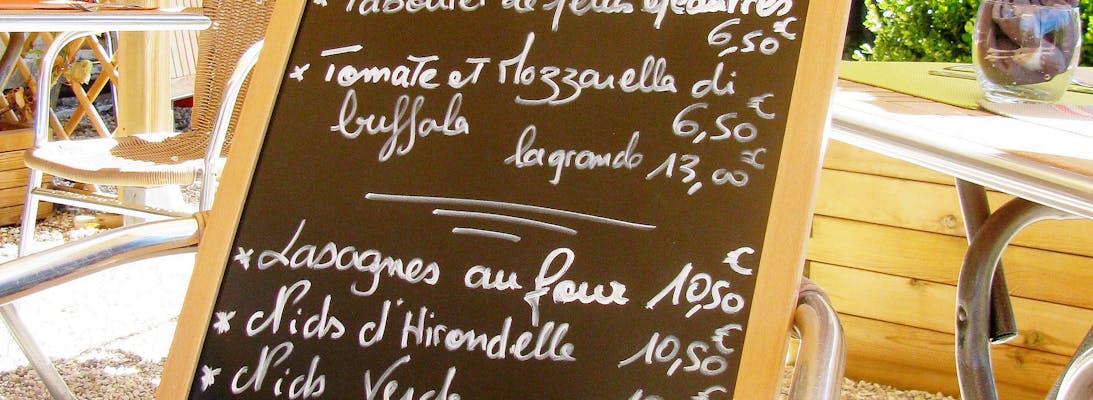 * Taboulet de
6,50€
* Tomate et Mozzarella di
buffala 6,50€
la grande 13,00€
* Lasagnes au four 10,50€
* Nids d'Hirondelle 10,50€
* Nids